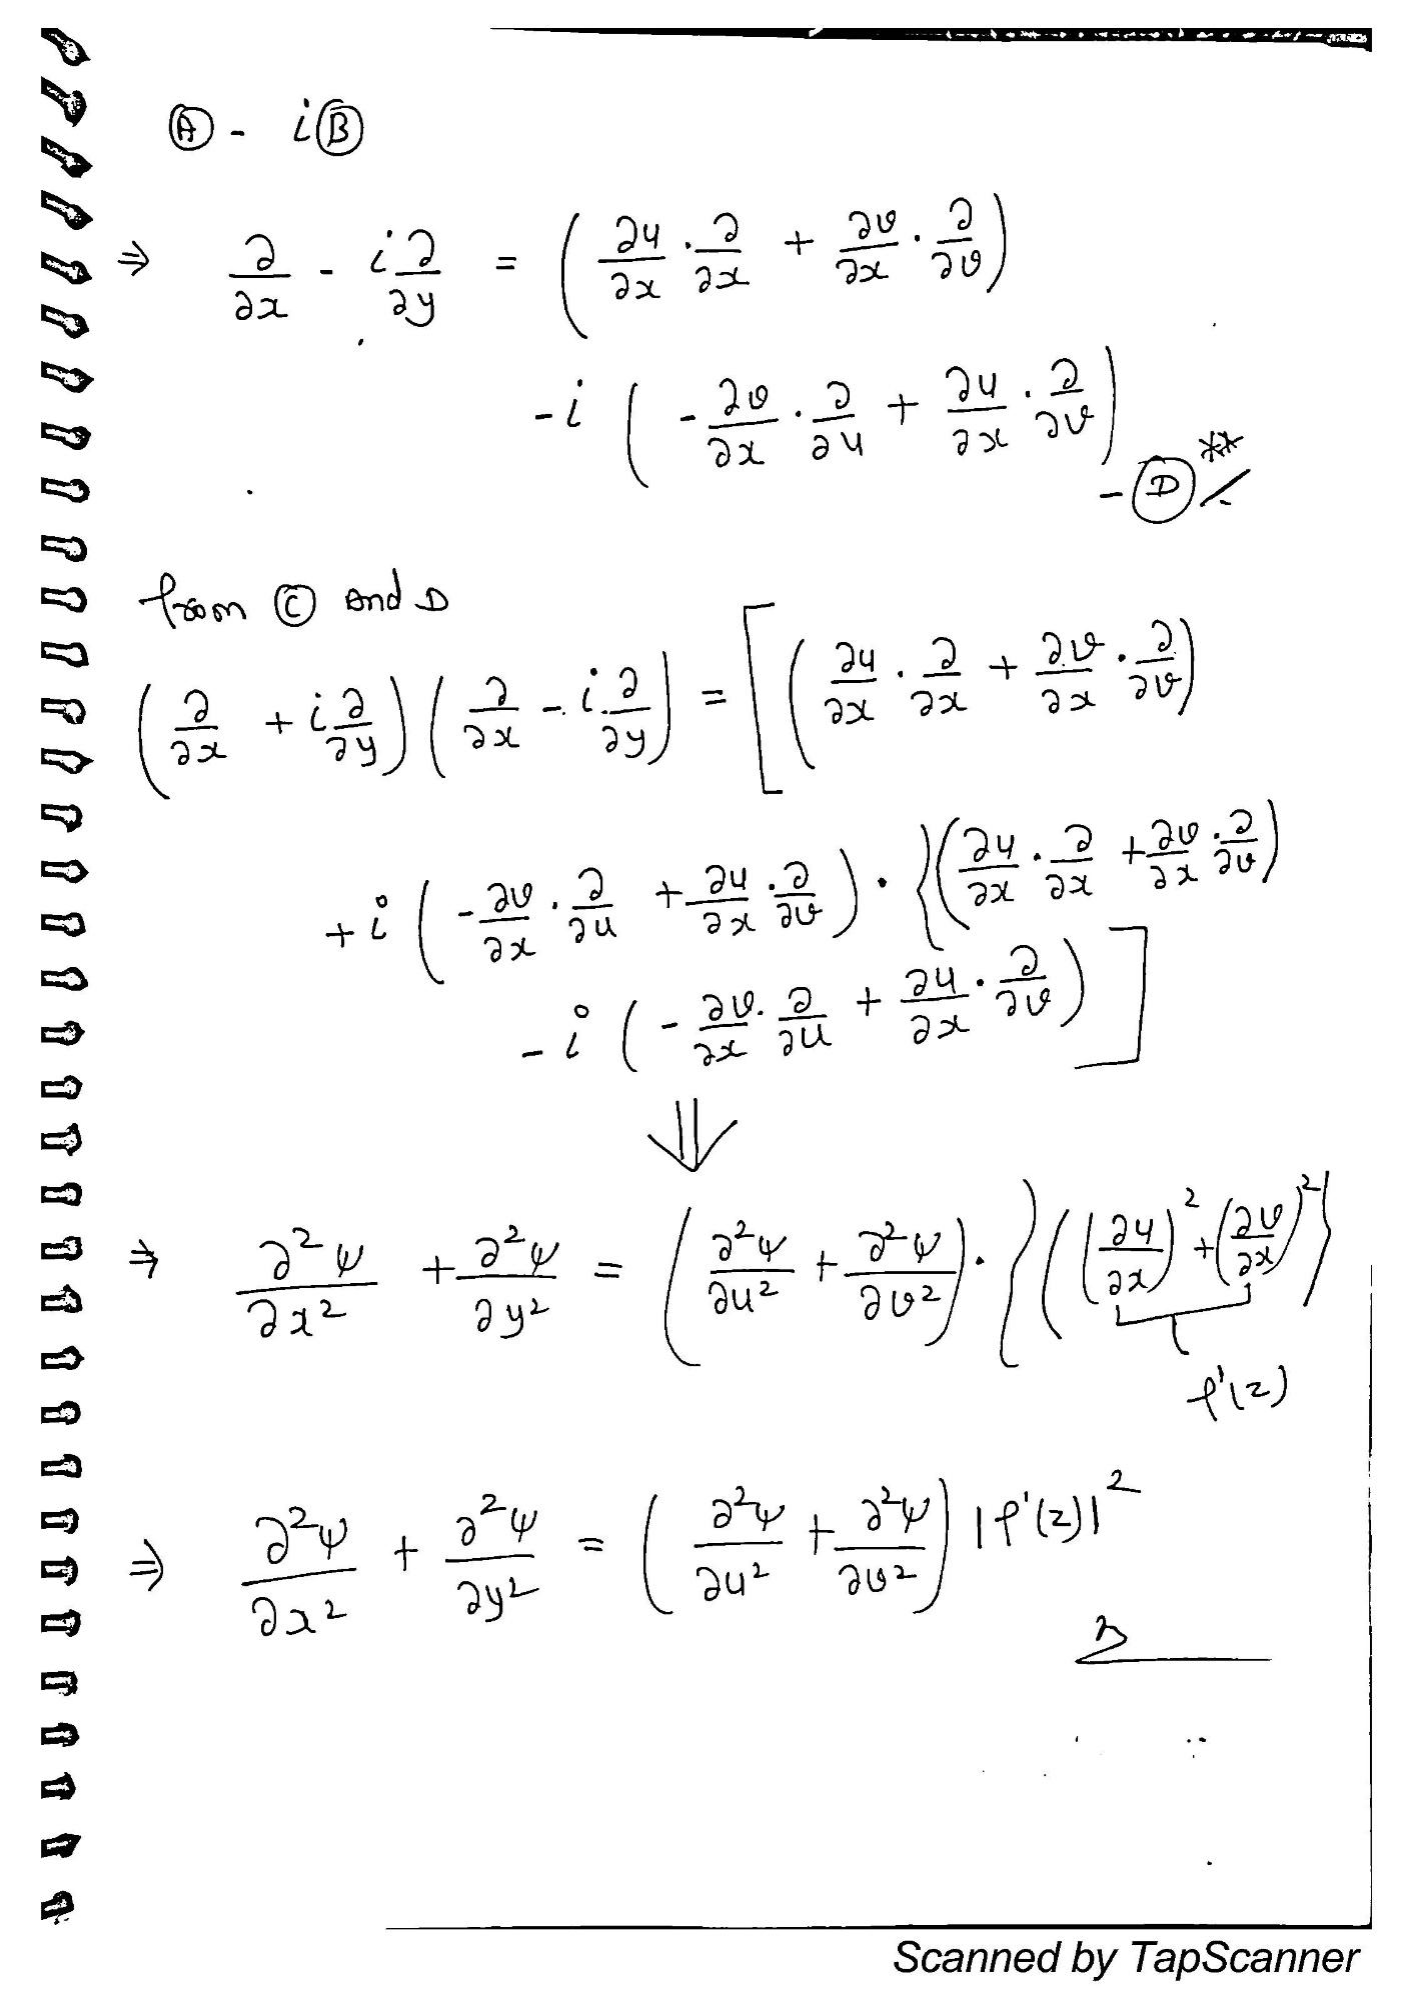 Ⓐ - iⒷ
⇒ ∂/∂x - i∂/∂y = (∂u/∂x · ∂/∂x + ∂v/∂x · ∂/∂v)
-i (-∂v/∂x · ∂/∂u + ∂u/∂x · ∂/∂v)
- Ⓓ **
from Ⓒ And D
(∂/∂x + i∂/∂y) (∂/∂x - i·∂/∂y) = [(∂u/∂x · ∂/∂x + ∂v/∂x · ∂/∂v)
+ i (-∂v/∂x · ∂/∂u + ∂u/∂x · ∂/∂v) · {(∂u/∂x · ∂/∂x + ∂v/∂x · ∂/∂v)
- i (-∂v/∂x · ∂/∂u + ∂u/∂x · ∂/∂v)]
⇓
⇒ ∂²ψ/∂x² + ∂²ψ/∂y² = (∂²ψ/∂u² + ∂²ψ/∂v²) · {((∂u/∂x)² + (∂v/∂x)²}
f'(z)
⇒ ∂²ψ/∂x² + ∂²ψ/∂y² = (∂²ψ/∂u² + ∂²ψ/∂v²) |f'(z)|²
Scanned by TapScanner